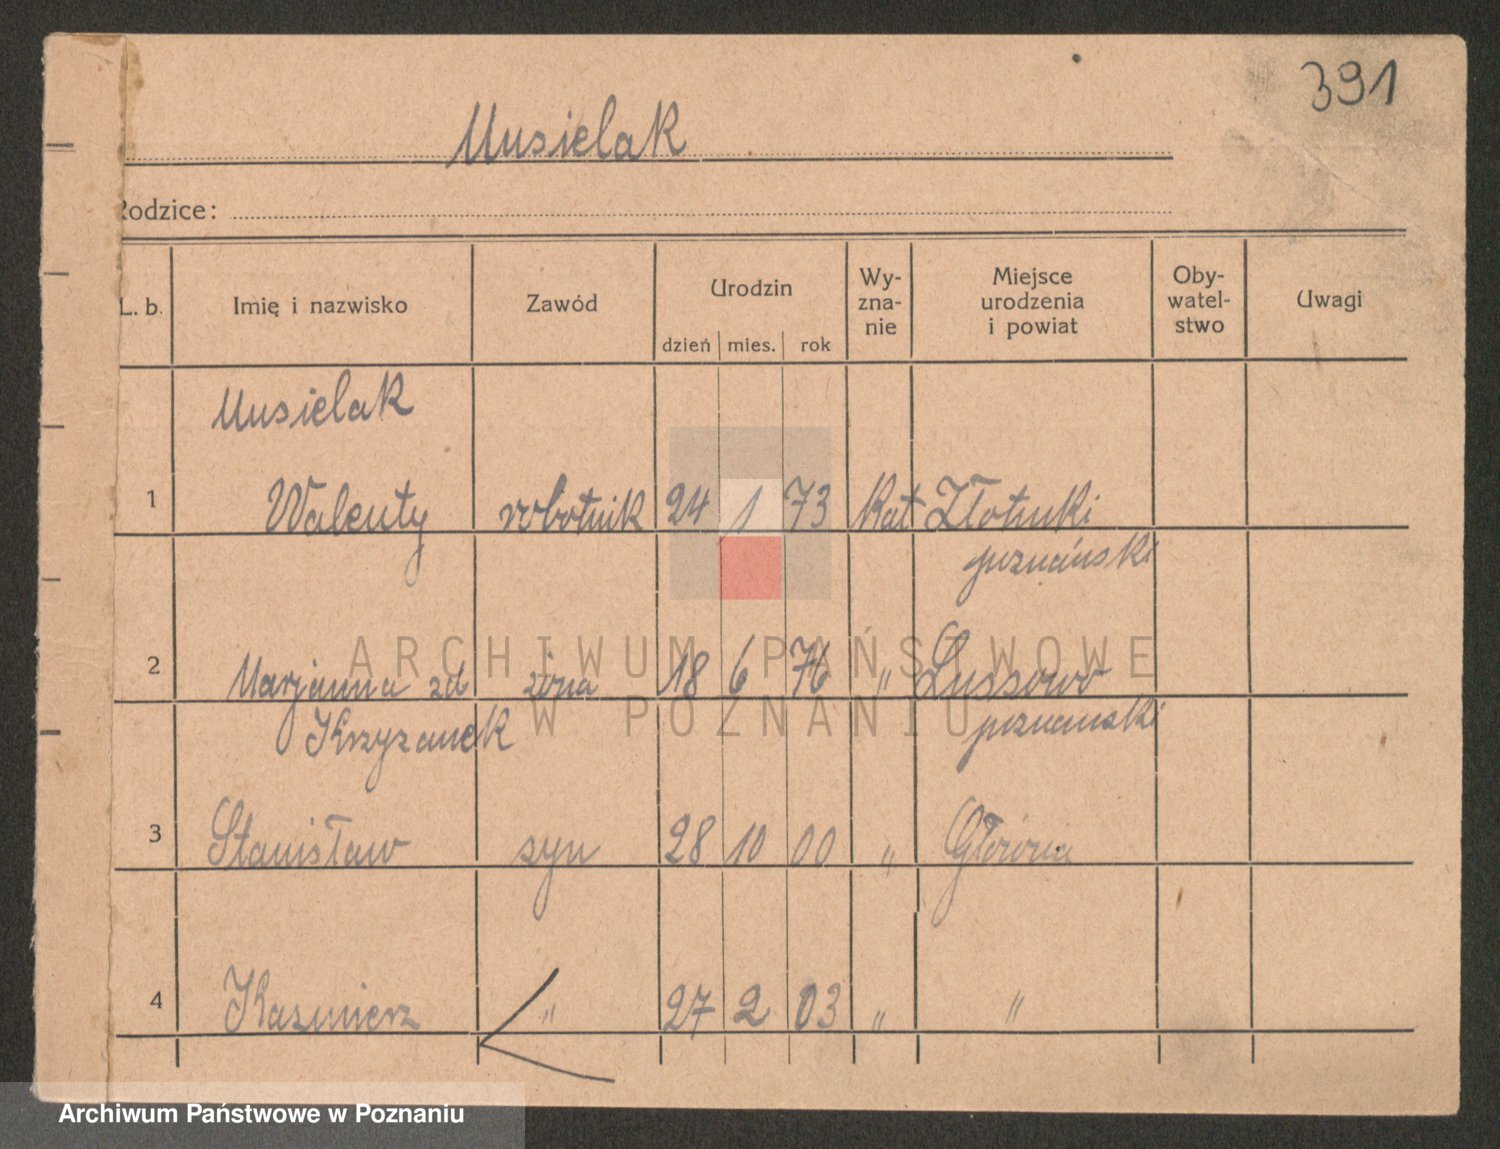 391
Musielak
Rodzice:
L. b. Imię i nazwisko Zawód Urodzin dzień mies. rok Wy-zna-nie Miejsce urodzenia i powiat Oby-watel-stwo Uwagi
Musielak
1 Walenty robotnik 24 1 73 Kat Złotniki
poznański
2 Marjanna zd żona 18 6 76 " Lussowo
Krzyzanek poznanski
3 Stanisław syn 28 10 00 " Główna
4 Kazmierz " 27 2 03 " "
ARCHIWUM PAŃSTWOWE
W POZNANIU
Archiwum Państwowe w Poznaniu